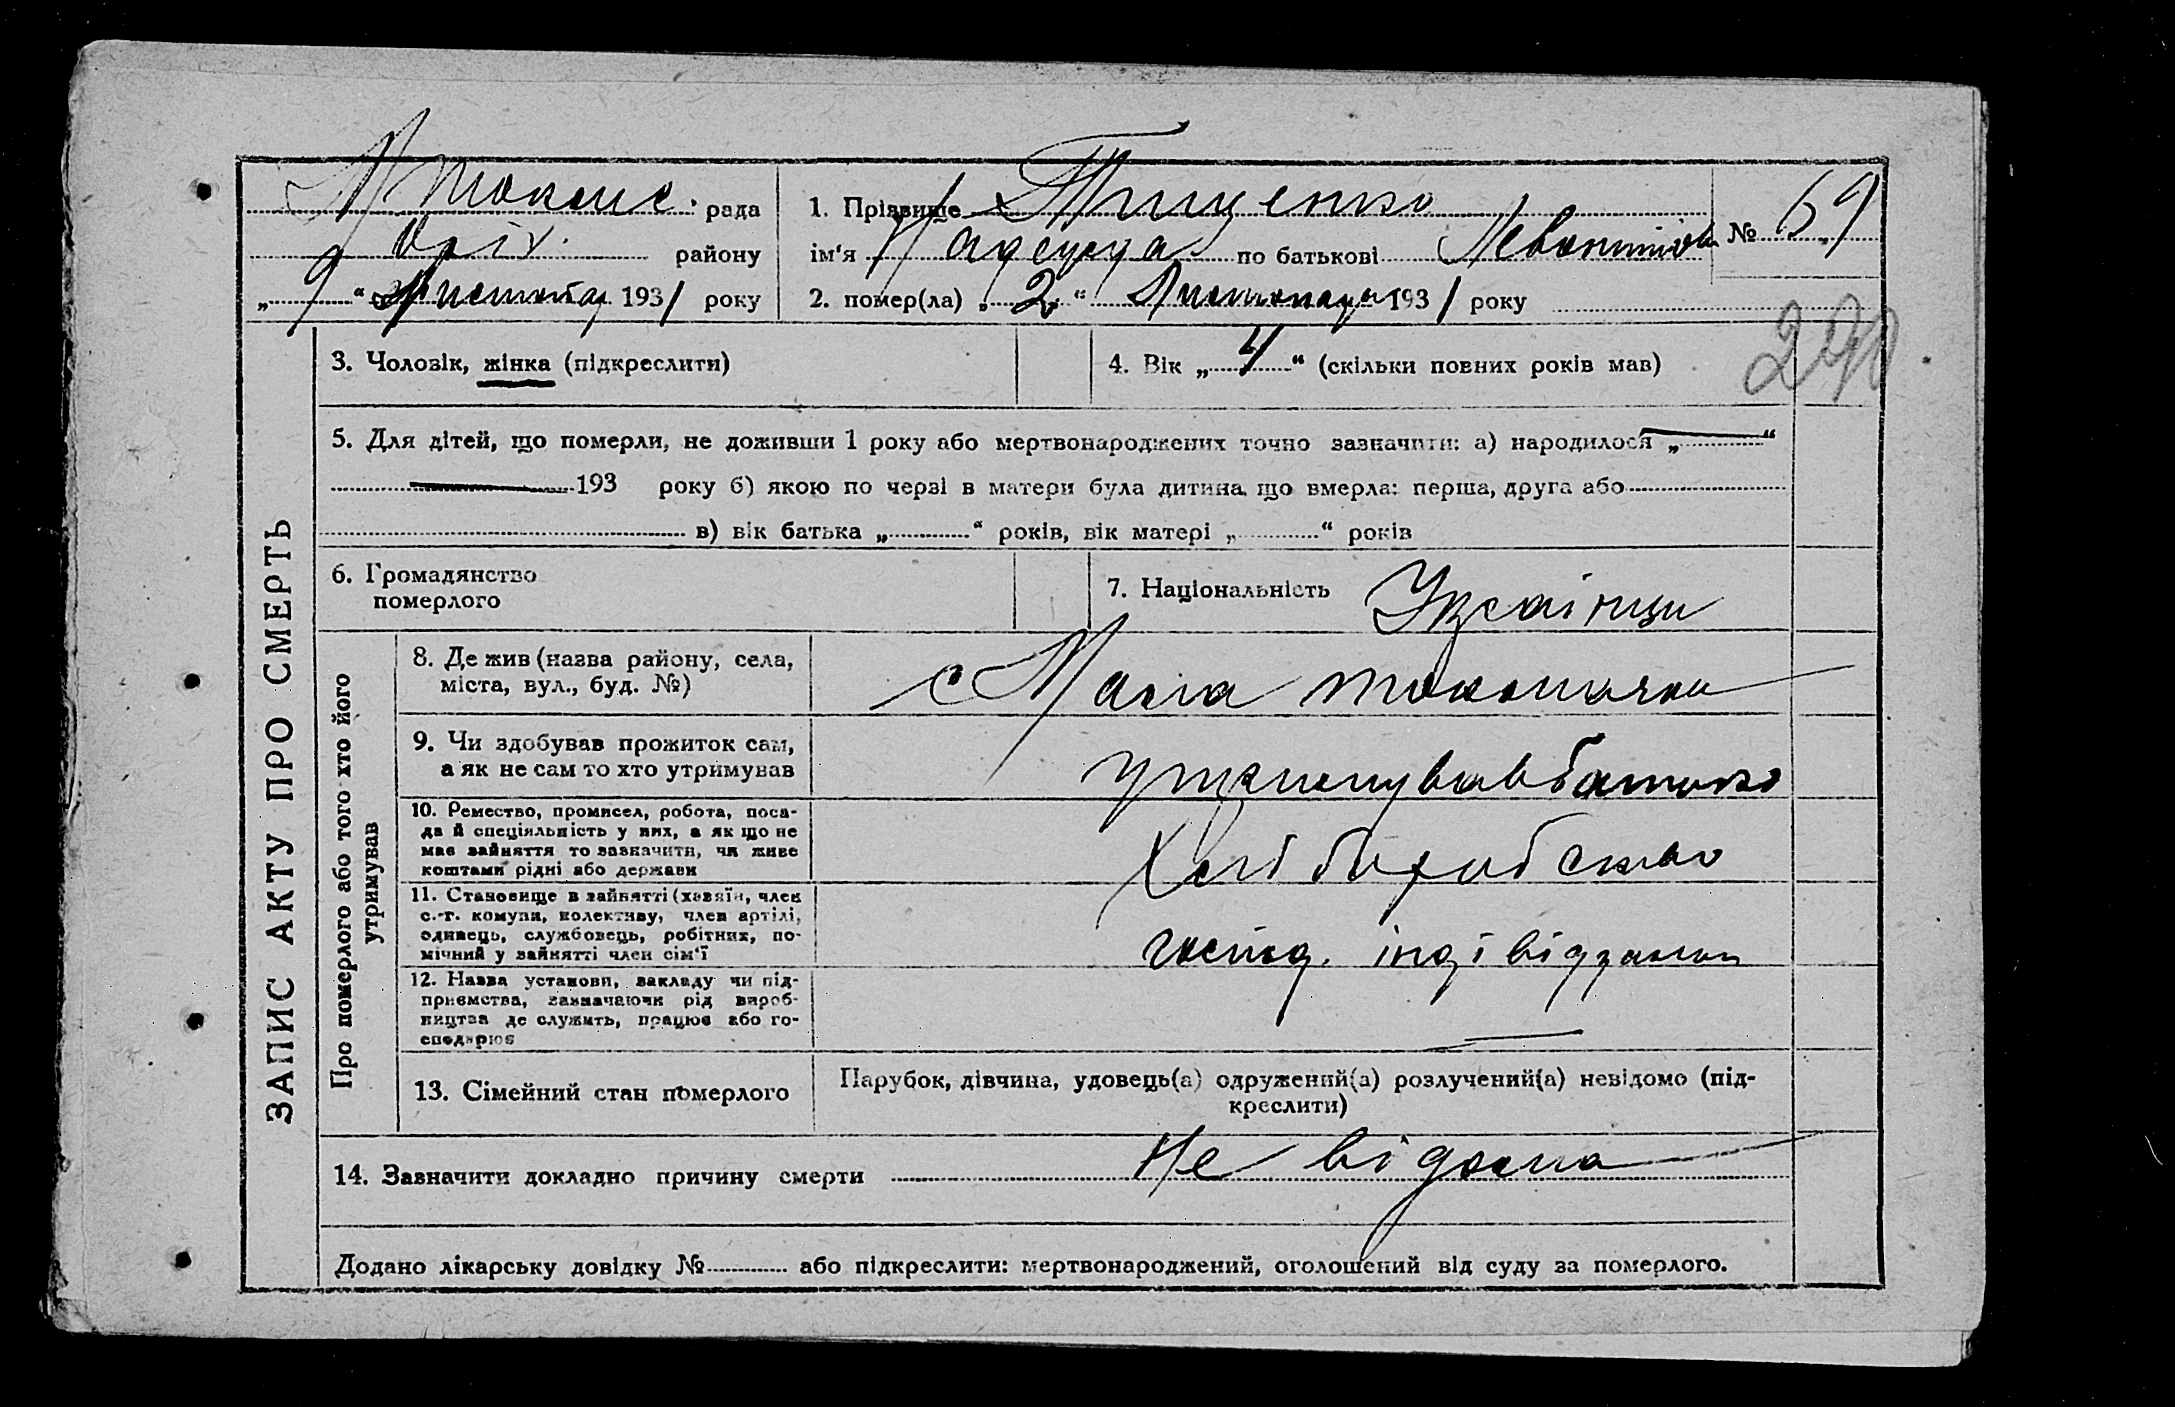 М токмач. рада
Оріх. району
„ 9 “ Листопад 1931 року
1. Прізвище Тищенко
ім'я Надежда по батькові Левонтіов.
№ 69
2. помер(ла) „ 2 “ Листопада 1931 року
290
ЗАПИС АКТУ ПРО СМЕРТЬ
3. Чоловік, жінка (підкреслити)
4. Вік „ 4 “ (скільки повних років мав)
5. Для дітей, що померли, не доживши 1 року або мертвонароджених точно зазначити: а) народилося „ “
193 року б) якою по черзі в матери була дитина, що вмерла: перша, друга або
в) вік батька „ “ років, вік матері „ “ років
6. Громадянство
померлого
7. Національність Українци
Про померлого або того хто його
утримував
8. Де жив (назва району, села,
міста, вул., буд. №)
с Мала токмачка
9. Чи здобував прожиток сам,
а як не сам то хто утримував
утримував батько
10. Ремество, промисел, робота, поса-
да й спеціяльність у них, а як що не
має зайняття то зазначити, чи живе
коштами рідні або держави
Хлібороб
11. Становище в зайнятті (хазяїн, член
с.-г. комуни, колективу, член артілі,
одинець, службовець, робітник, по-
мічний у зайнятті член сім'ї
господ.
12. Назва установи, закладу чи під-
приємства, зазначаючи рід вироб-
ництва де служить, працює або го-
сподарює
13. Сімейний стан померлого
Парубок, дівчина, удовець(а) одружений(а) розлучений(а) невідомо (під-
креслити)
14. Зазначити докладно причину смерти Не відома
Додано лікарську довідку № або підкреслити: мертвонароджений, оголошений від суду за померлого.